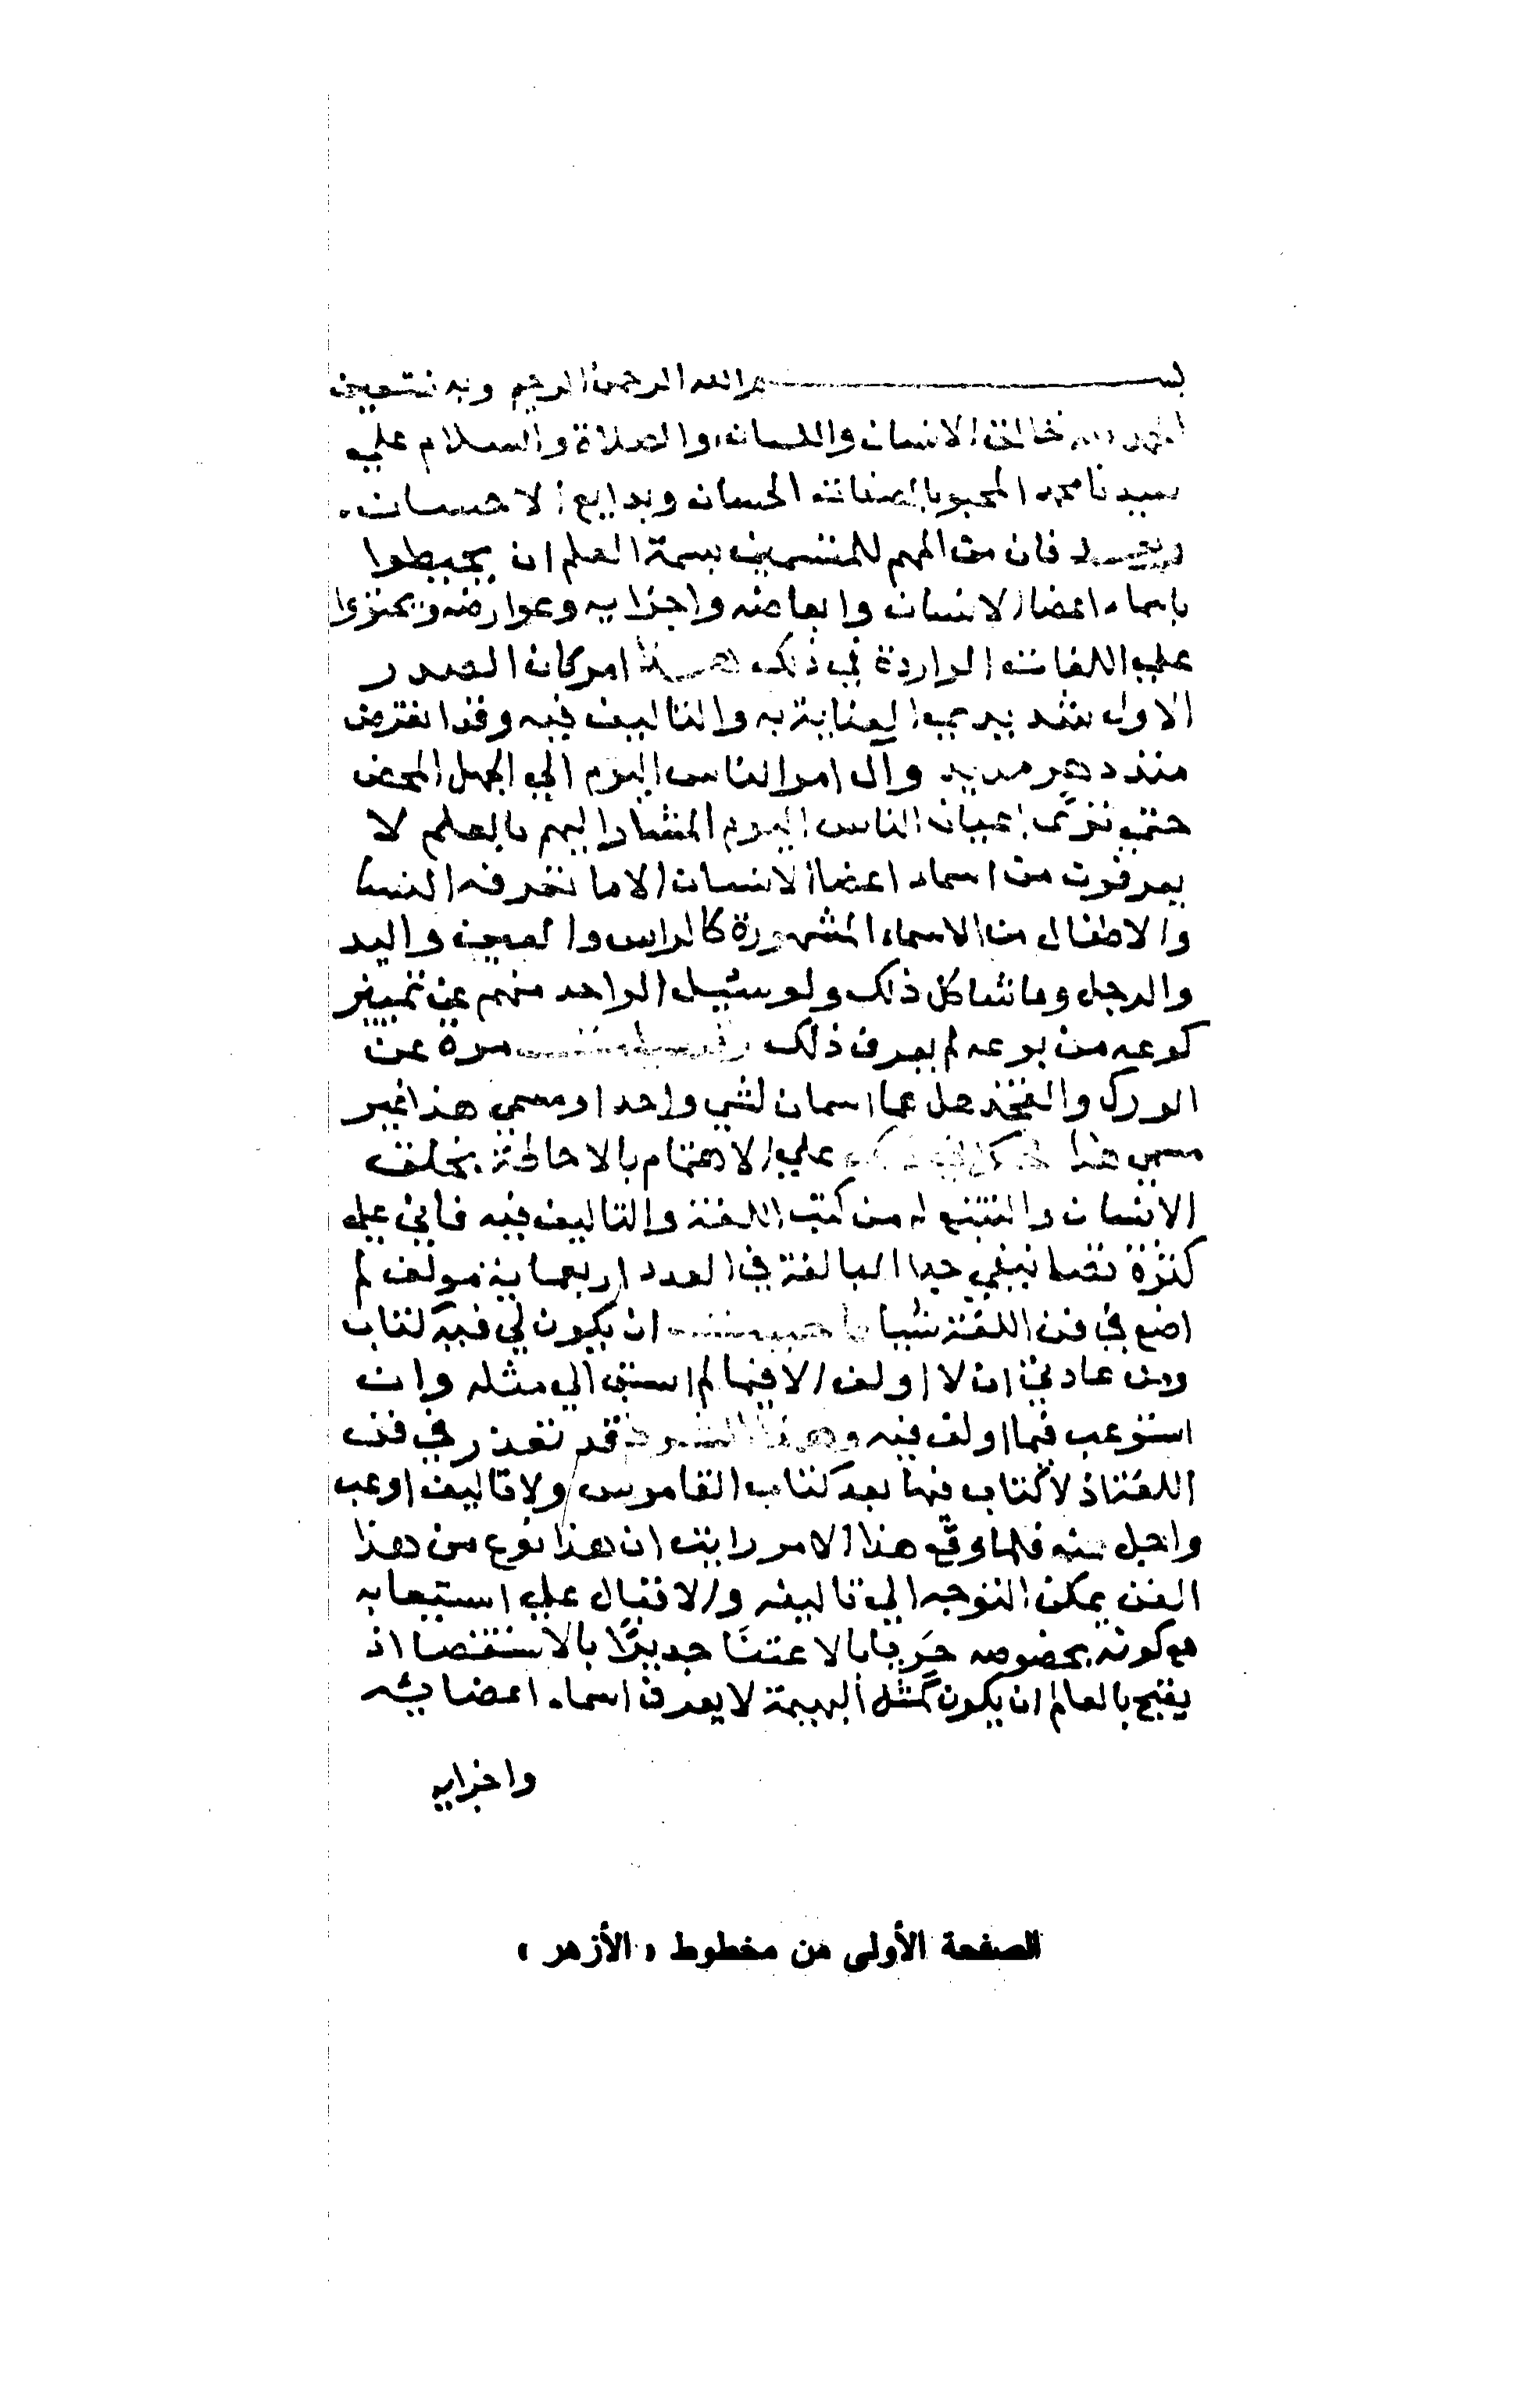 بســـــم الله الرحمن الرحيم وبه نستعين
الحمد لله خالق الانسان واللسان والصلاة والسلام علي
سيدنا محمد المحبو بالصفات الحسان وبدايع الاحسان.
وبعد فان من المهم للمتسمين بسمة العلم ان يحيطوا
باسماء اعضا الانسان وابعاضه واجزايه وعوارضه ويحتووا
علي اللغات الواردة في ذلك هذا امر كان الصدر
الاول شديدي العناية به والتاليف فيه وقد انقرض
منذ دهر مديد وآل امر الناس اليوم الي الجهل المحض
حتي تري اعيان الناس اليوم المشار اليهم بالعلم لا
يعرفون من اسماء اعضا الانسان الا ما تعرفه النسا
والاطفال من الاسماء المشهورة كالراس والعين واليد
والرجل وما شاكل ذلك ولو سئيل الواحد منهم عن تمييز
كوعه من بوعه لم يعرف ذلك وقد سيلت مرة عن
الورك والفخذ هل هما اسمان لشي واحد او مسمي هذا غير
مسمي هذا علي الاهتمام بالاحاطة بخلق
الانسان والتتبع له من كتب اللغة والتاليف فيه فاني علي
كثرة تصانيفي جدا البالغة في العدد اربعماية مولف لم
اضع في فن اللغة شيا ان يكون لي فيه كتاب
ومن عادتي ان لا اولف الا فيما لم اسبق الي مثله وان
استوعب فيما اولف فيه وهذا الشرط قد تعذر في فن
اللغة اذ لا كتاب فيها بعد كتاب القاموس ولا تاليف اوعب
واجل منه فلما وقع هذا الامر رايت ان هذا نوع من هذا
الفن يمكن التوجه الي تاليفه والاقبال علي استيعابه
مع كونه بخصوصه حَرِيا بالاعتنا جديرًا بالاستقصا اذ
يقبح بالعالم ان يكون كمثل البهيمة لا يعرف اسماء اعضائه
واجزايه
الصفحة الأولى من مخطوط « الأزهر »